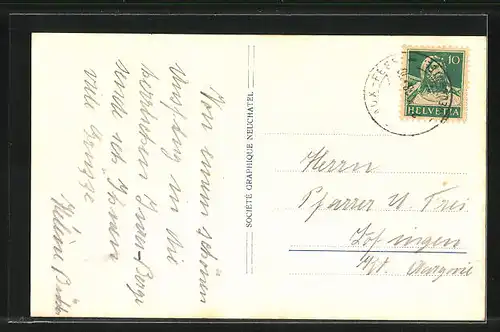 Von einem schönen
Ausflug in die
herrlichen Jura-Berge
sende ich Ihnen
viele Grüsse
SOCIÉTÉ GRAPHIQUE NEUCHATEL
10
HELVETIA
Herrn
Pfarrer U. Frei
Zofingen
Kt. Aargau